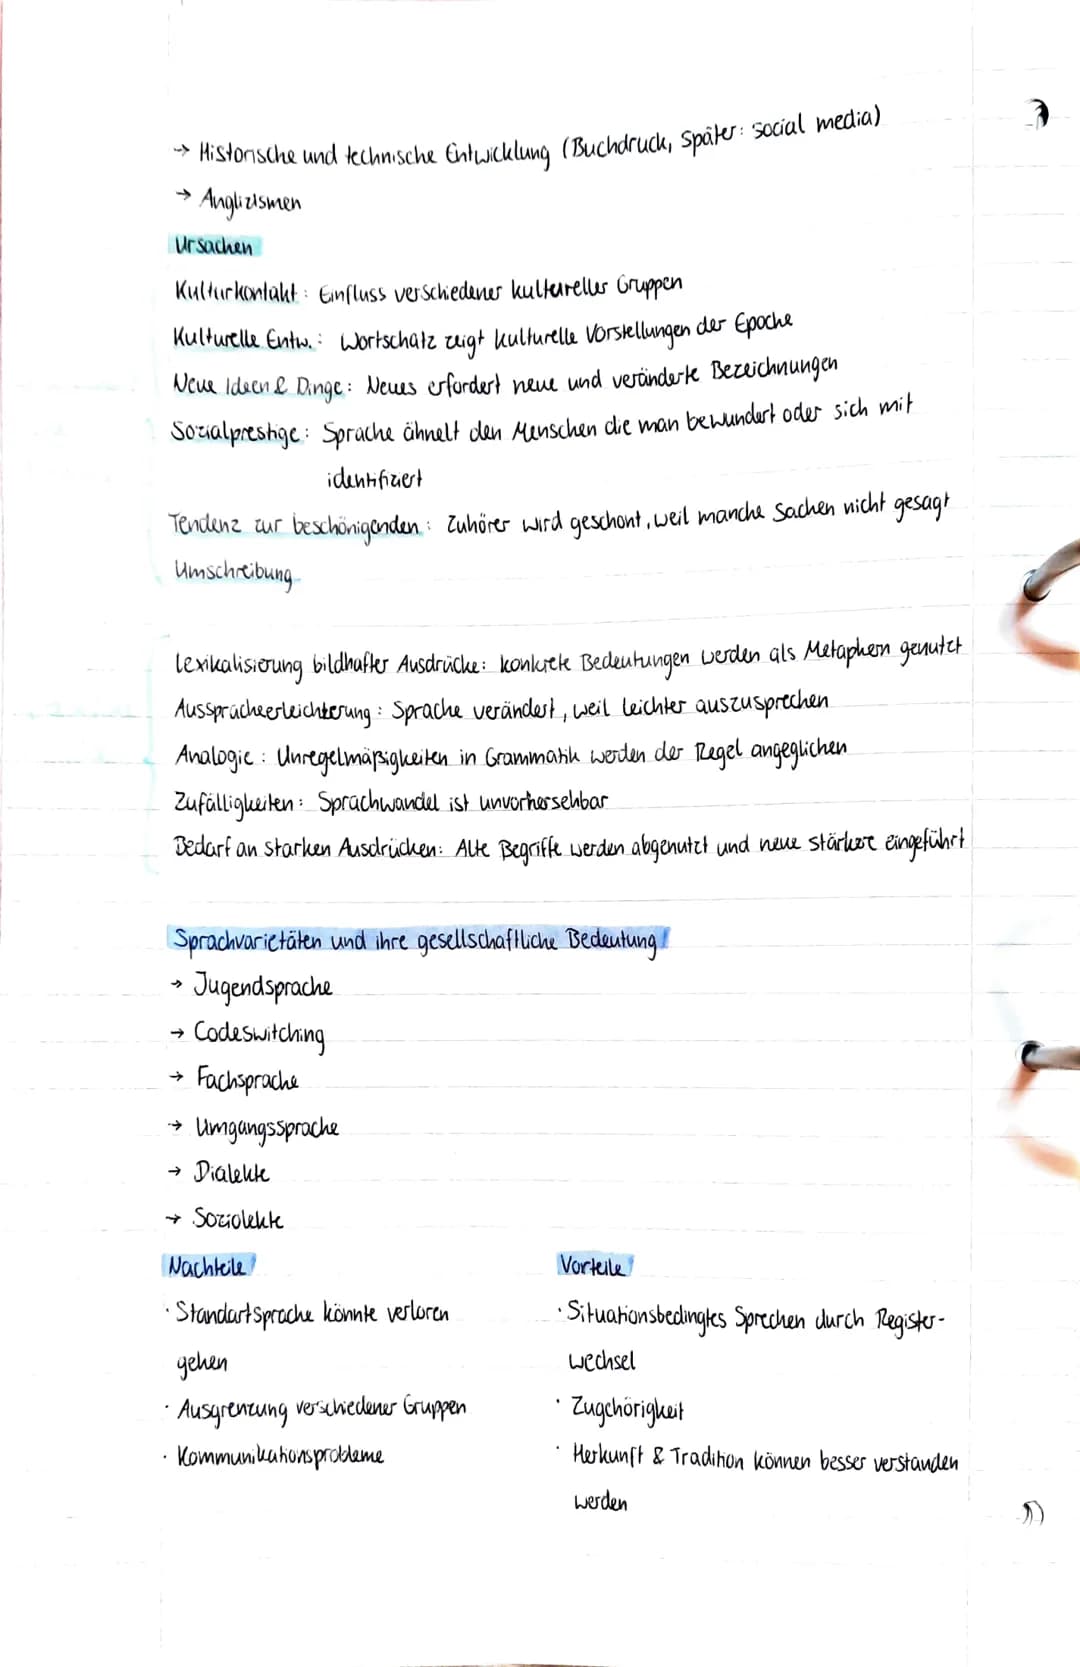 → Historische und technische Entwicklung (Buchdruck, später: social media)
→ Anglizismen
Ursachen
Kulturkontakt: Einfluss verschiedener kultureller Gruppen
Kulturelle Entw.: Wortschatz zeigt kulturelle Vorstellungen der Epoche
Neue Ideen & Dinge: Neues erfordert neue und veränderte Bezeichnungen
Sozialprestige: Sprache ähnelt den Menschen die man bewundert oder sich mit
identifiziert
Tendenz zur beschönigenden: Zuhörer wird geschont, weil manche Sachen nicht gesagt
Umschreibung
Lexikalisierung bildhafter Ausdrücke: konkrete Bedeutungen werden als Metaphern genutzt
Ausspracheerleichterung: Sprache verändert, weil leichter auszusprechen
Analogie: Unregelmäßigkeiten in Grammatik werden der Regel angeglichen
Zufälligkeiten: Sprachwandel ist unvorhersehbar
Bedarf an starken Ausdrücken: Alte Begriffe werden abgenutzt und neue stärkere eingeführt
Sprachvarietäten und ihre gesellschaftliche Bedeutung
→ Jugendsprache
→ Codeswitching
→ Fachsprache
→ Umgangssprache
→ Dialekte
→ Soziolekte
Nachteile
· Standartsprache könnte verloren
gehen
· Ausgrenzung verschiedener Gruppen
· Kommunikationsprobleme
Vorteile
· Situationsbedingtes Sprechen durch Register-
wechsel
· Zugehörigkeit
· Herkunft & Tradition können besser verstanden
werden